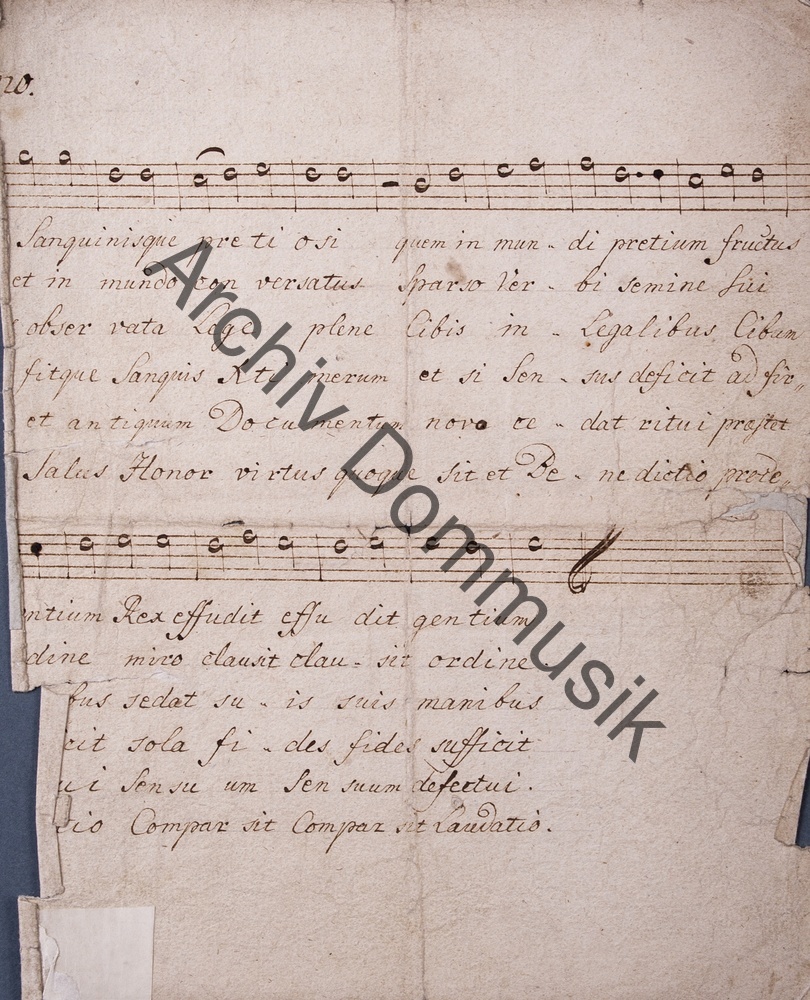 no.
Sanguinisque pre ti o si quem in mun - di pretium fructus
et in mundo con versatus Sparso Ver - bi semine sui
obser vata Lege plene Cibis in - Legalibus Cibum
fitque Sanguis Xti merum et si Sen - sus deficit ad fir„
et an tiquum Documentum novo ce - dat ritui præstet
Salus Honor virtus quoque sit et Be - ne dictio proce„
ntium Rex effudit effu dit gentium
dine miro clausit clau - sit ordine.
bus sedat su - is suis manibus
cit sola fi - des fides sufficit
ui Sensu um Sen suum defectui.
sio Compar sit Compar sit Laudatio.
Archiv Dommusik